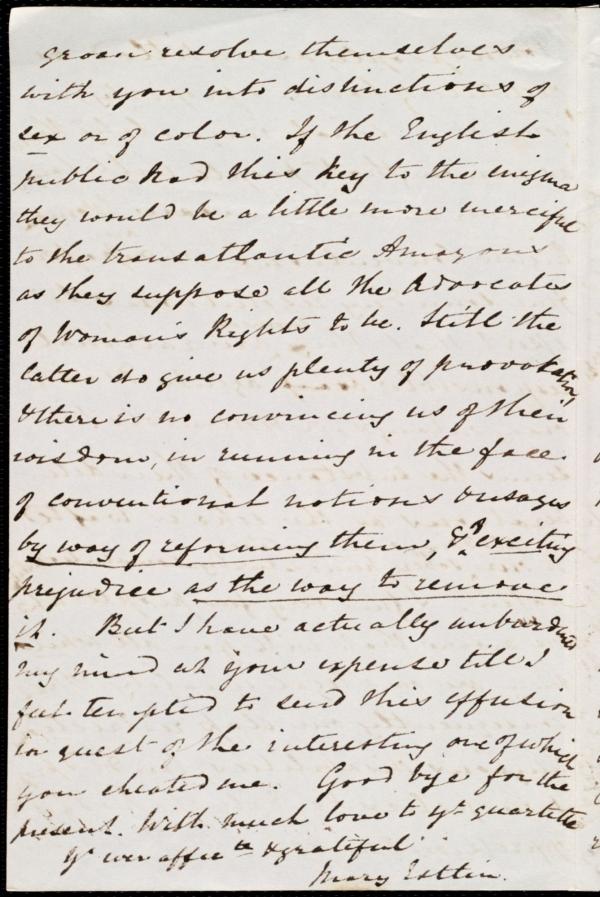 groan resolve themselves
with you into distinctions of
sex or of color. If the English
public had this key to the enigma
they would be a little more merciful
to the transatlantic Amazons
as they suppose all the Advocates
of Woman's Rights to be. Still the
latter do give us plenty of provokation
& there is no convincing us of their
wisdom, in running in the face
of conventional notions & usages
by way of reforming them, & exciting
prejudice as the way to remove
it. But I have actually unburdened
my mind at your expense till I
feel tempted to send this effusion
in quest of the interesting one of which
you cheated me. Good bye for the
present. With much love to yr. quartette
Yr. ever affecte. & grateful
Mary Estlin.